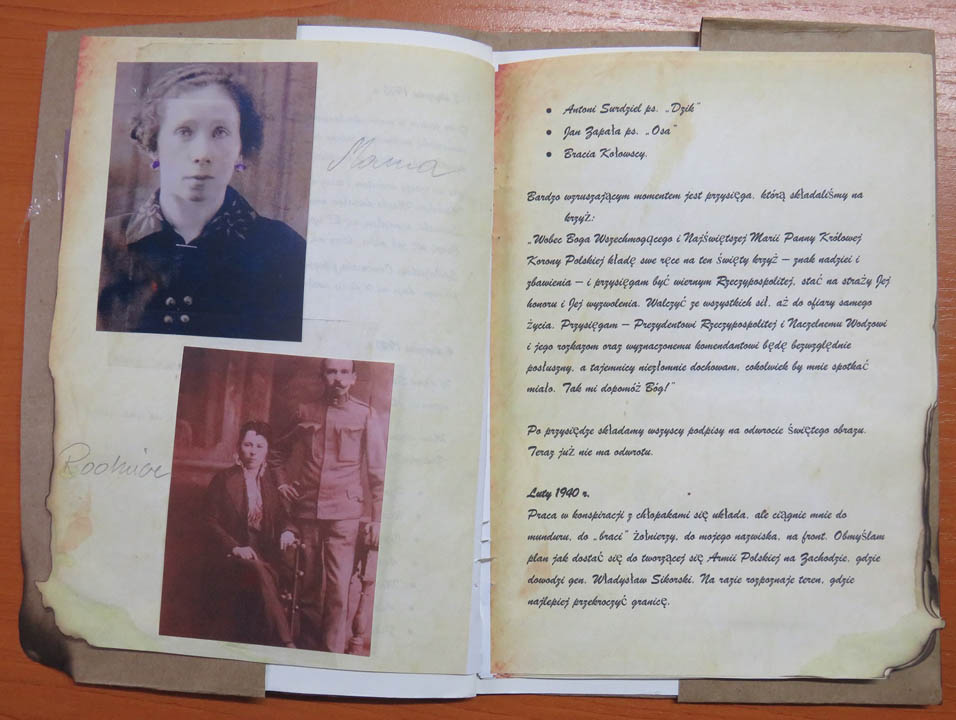 Mama
Rodzice
• Antoni Surdziel ps. „Dzik"
• Jan Zapała ps. „Osa"
• Bracia Kołowscy.
Bardzo wzruszającym momentem jest przysięga, którą składaliśmy na
krzyż:
„Wobec Boga Wszechmogącego i Najświętszej Marii Panny Królowej
Korony Polskiej kładę swe ręce na ten święty krzyż – znak nadziei i
zbawienia – i przysięgam być wiernym Rzeczypospolitej, stać na straży Jej
honoru i Jej wyzwolenia. Walczyć ze wszystkich sił, aż do ofiary samego
życia. Przysięgam – Prezydentowi Rzeczypospolitej i Naczelnemu Wodzowi
i jego rozkazom oraz wyznaczonemu komendantowi będę bezwzględnie
posłuszny, a tajemnicy niezłomnie dochowam, cokolwiek by mnie spotkać
miało. Tak mi dopomóż Bóg!"
Po przysiędze składamy wszyscy podpisy na odwrocie świętego obrazu.
Teraz już nie ma odwrotu.
Luty 1940 r.
Praca w konspiracji z chłopakami się układa, ale ciągnie mnie do
munduru, do „braci" żołnierzy, do mojego nazwiska, na front. Obmyślam
plan jak dostać się do tworzącej się Armii Polskiej na Zachodzie, gdzie
dowodzi gen. Władysław Sikorski. Na razie rozpoznaje teren, gdzie
najlepiej przekroczyć granicę.